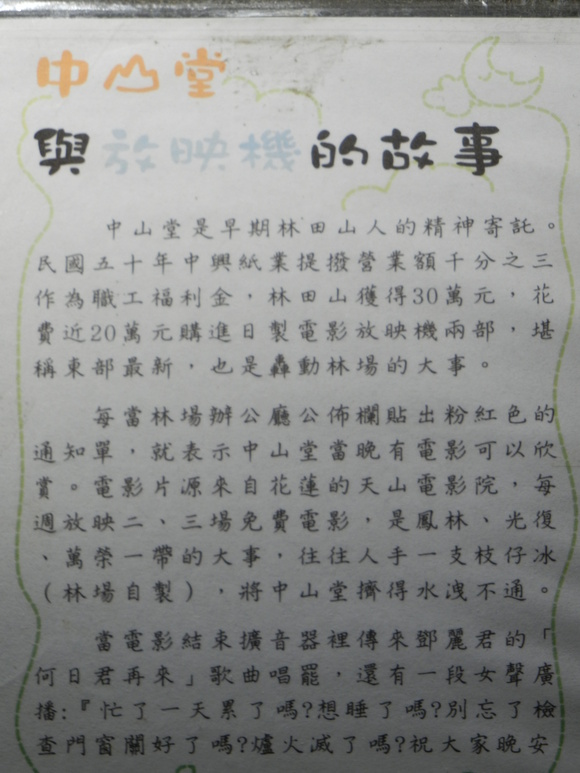 中山堂
與放映機的故事
中山堂是早期林田山人的精神寄託。
民國五十年中興紙業提撥營業額千分之三
作為職工福利金，林田山獲得30萬元，花
費近20萬元購進日製電影放映機兩部，堪
稱東部最新，也是轟動林場的大事。
每當林場辦公廳公佈欄貼出粉紅色的
通知單，就表示中山堂當晚有電影可以欣
賞。電影片源來自花蓮的天山電影院，每
週放映二、三場免費電影，是鳳林、光復
、萬榮一帶的大事，往往人手一支枝仔冰
（林場自製），將中山堂擠得水洩不通。
當電影結束擴音器裡傳來鄧麗君的「
何日君再來」歌曲唱罷，還有一段女聲廣
播:『忙了一天累了嗎?想睡了嗎?別忘了檢
查門窗關好了嗎?爐火滅了嗎?祝大家晚安